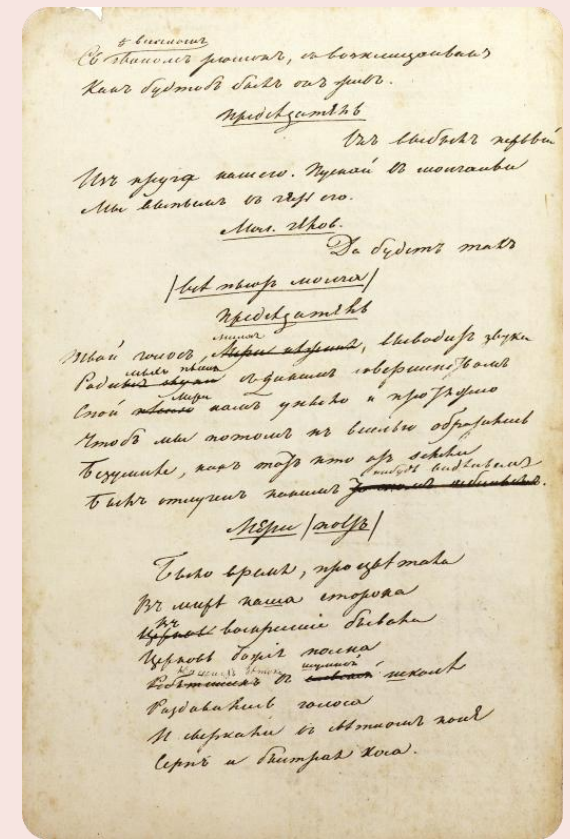 съ веселымъ
Съ звономъ рюмокъ, съ восклицаньемъ
Какъ будтобъ былъ онъ живъ.
Предсѣдатель
Онъ выбылъ первый
Изъ круга нашего. Пускай въ молчаньи
Мы выпьемъ въ честь его.
Мол.
Да будетъ такъ
(всѣ пьютъ молча)
Предсѣдатель
милая
Твой голосъ, выводитъ звуки
пѣсень
Родимыхъ съ дикимъ совершенствомъ
Мери
Спой намъ уныло и протяжно
Чтобъ мы потомъ къ веселью обратились
Безумнѣе, какъ тотъ кто отъ земли
нибудь видѣньемъ
Былъ отлученъ какимъ
Мери (поетъ)
Было время, процвѣтала
Въ мирѣ наша сторона
Въ
Церковь воскресение бывала
Церковь божія полна
Нашихъ дѣтокъ шумной
въ школѣ
Раздавались голоса
И сверкали въ свѣтломъ полѣ
Серпъ и быстрая коса.